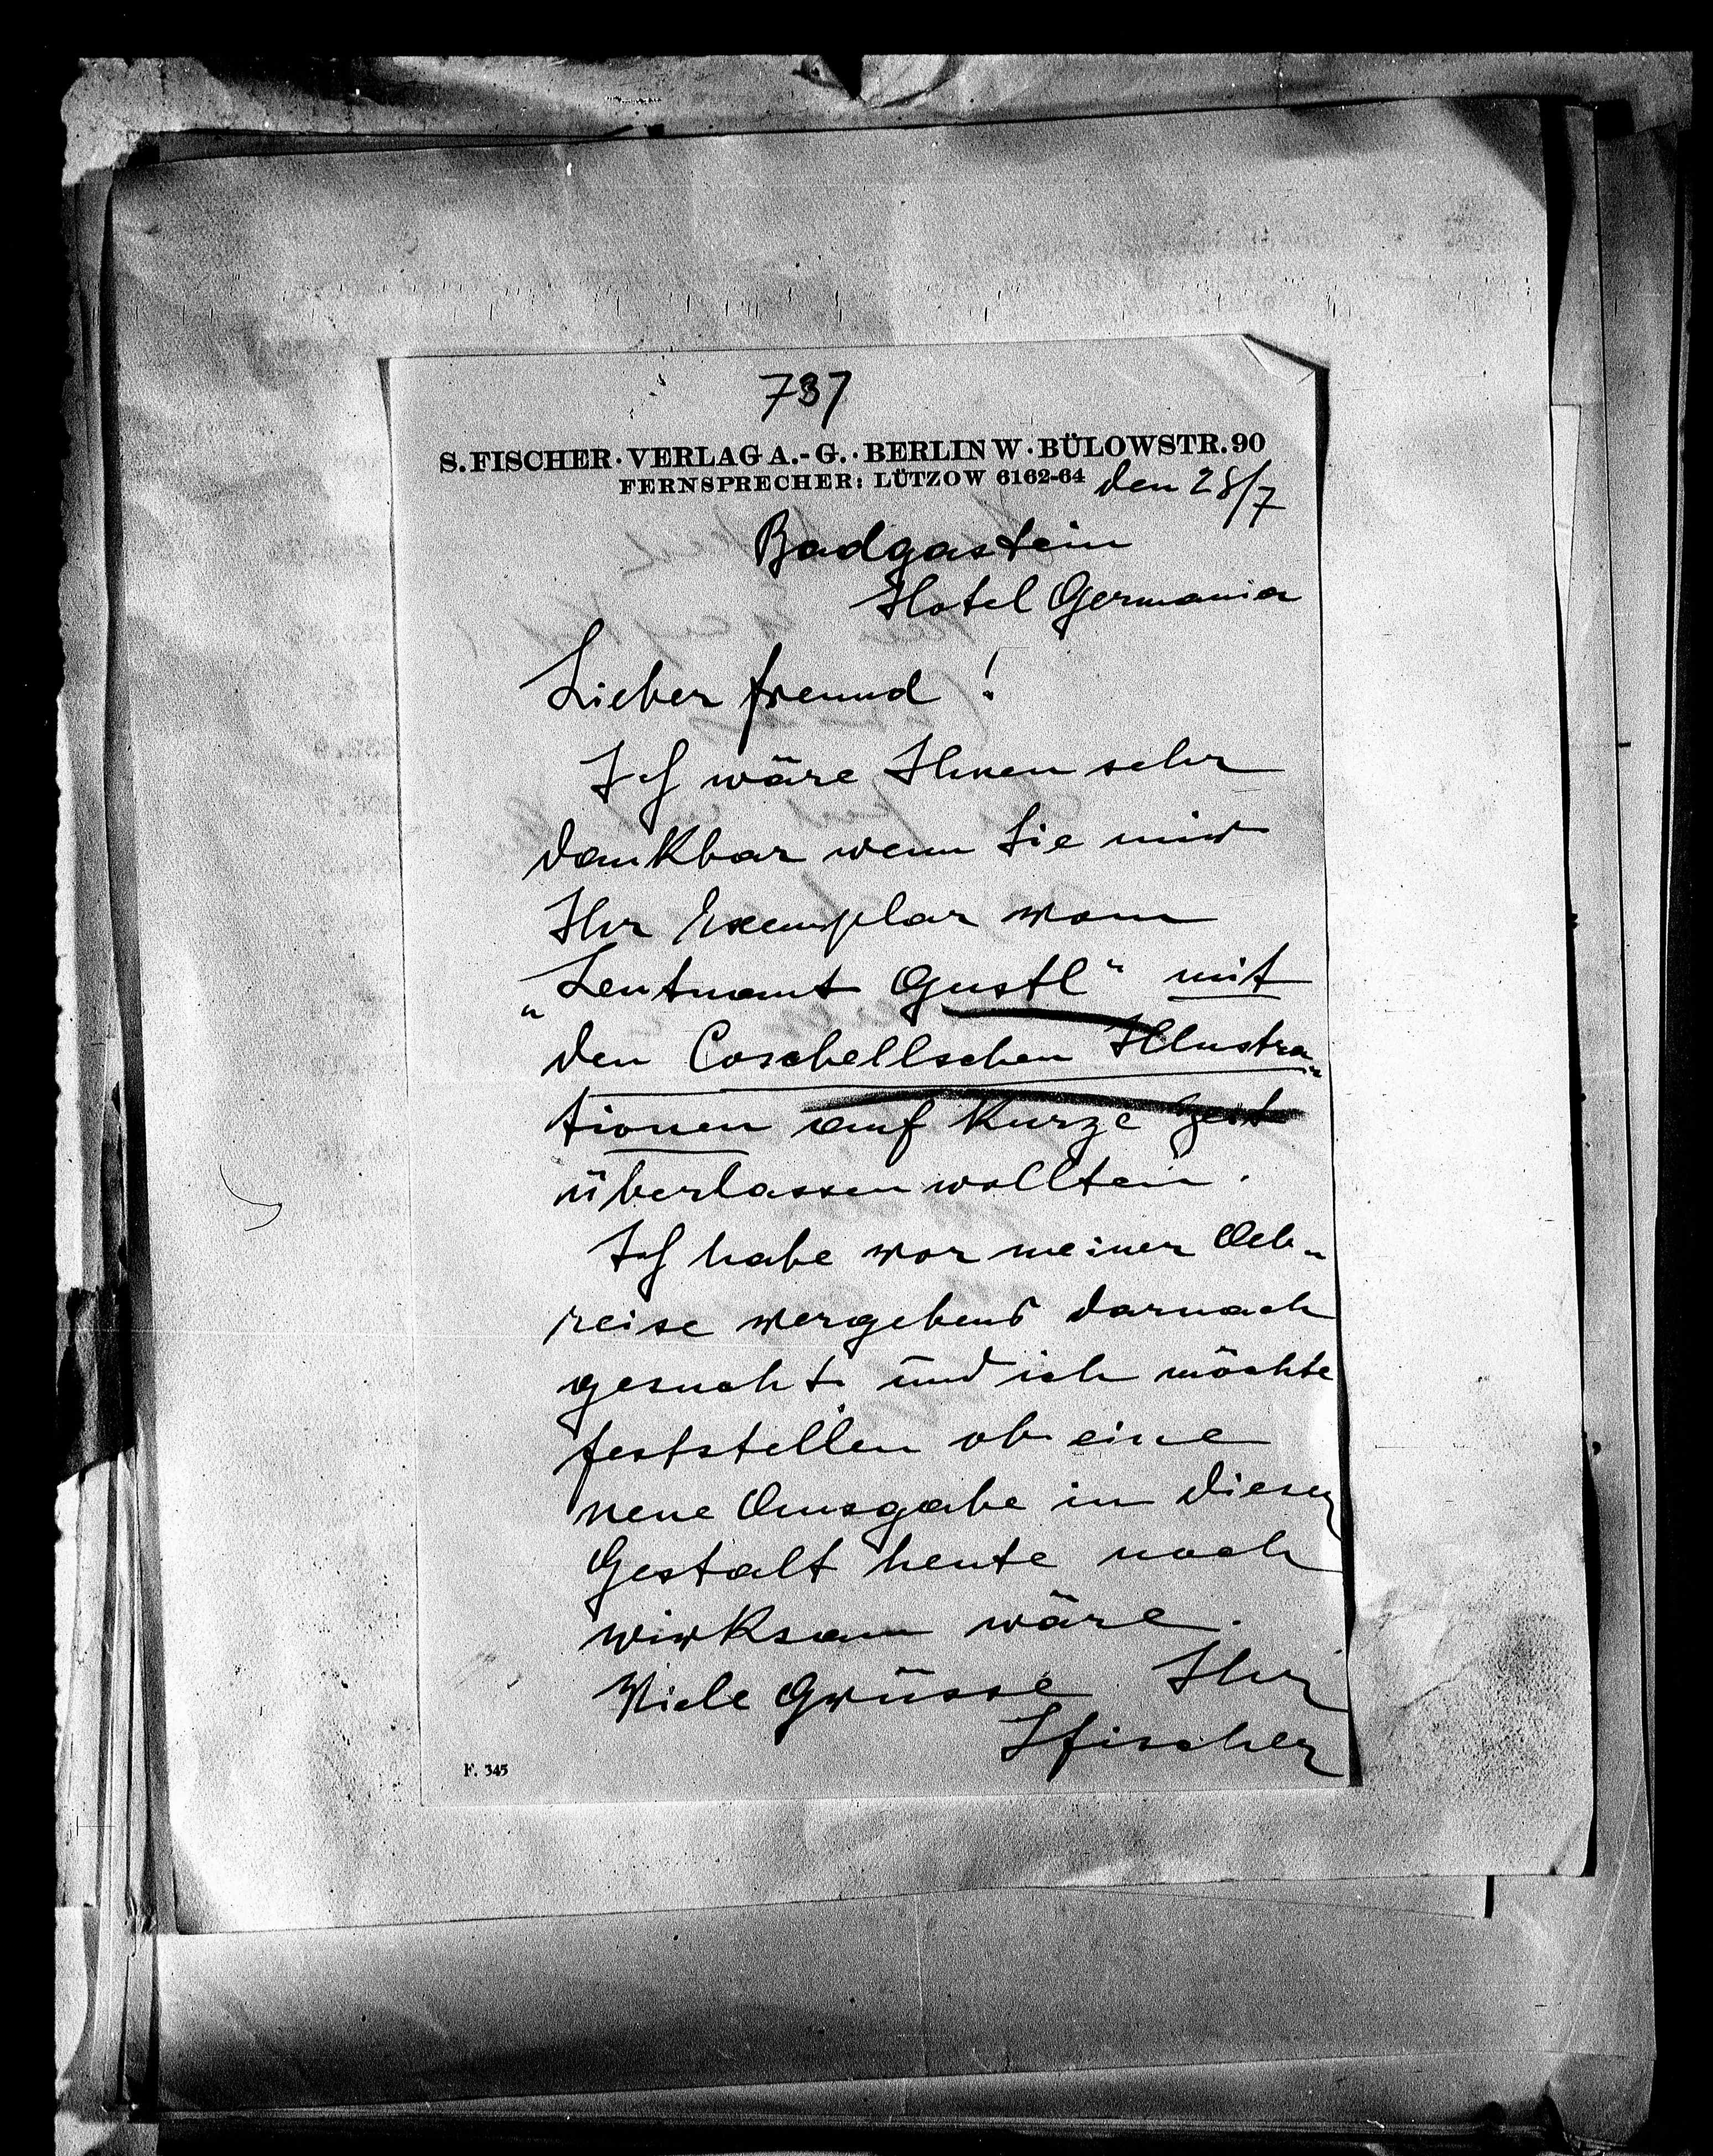 737
S. FISCHER · VERLAG A.-G. · BERLIN W · BÜLOWSTR. 90
FERNSPRECHER: LÜTZOW 6162-64 den 28/7
Badgastein
Hotel Germania
Lieber Freund!
Ich wäre Ihnen sehr
dankbar wenn Sie mir
Ihr Exemplar vom
„Leutnant Gustl“ mit
den Coschellschen Illustra-
tionen auf kurze Zeit
überlassen wollten.
Ich habe vor meiner Ab-
reise vergebens darnach
gesucht und ich möchte
feststellen ob eine
neue Ausgabe in dieser
Gestalt heute noch
wirksam wäre.
Viele Grüsse Ihr
SFischer
F. 345